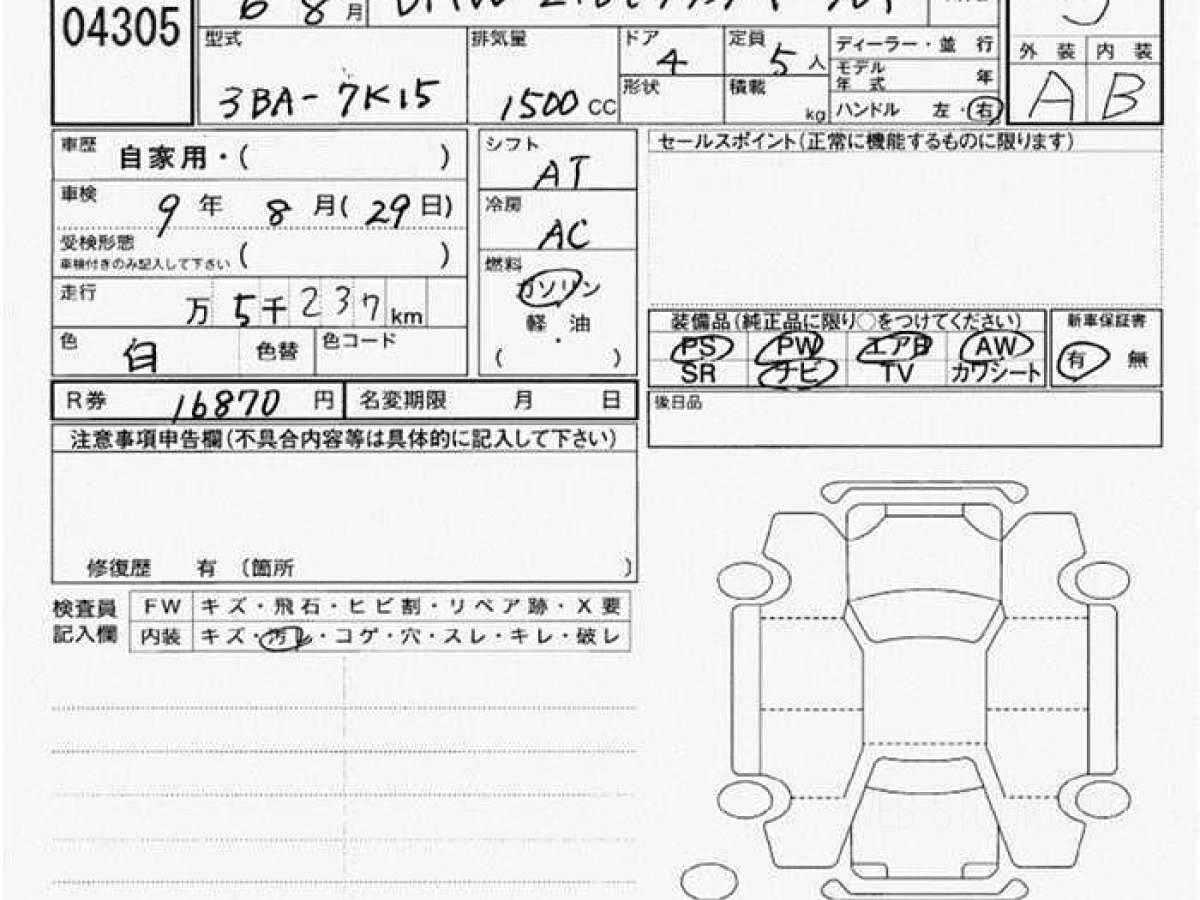 04305
6 8月
型式 3BA-7K15
排気量 1500 CC
ドア 4
定員 5 人
形状
積載 kg
ディーラー・並 行
モデル年式 年
ハンドル 左・右
外 装 内 装
A B
車歴 自家用・( )
車検 9年 8月(29日)
受検形態
車検付きのみ記入して下さい ( )
走行 万5千237km
色 白 色替 色コード
シフト AT
冷房 AC
燃料 ガソリン
軽 油
( ・ )
セールスポイント(正常に機能するものに限ります)
装備品(純正品に限り○をつけてください)
PS PW エアB AW
SR ナビ TV カワシート
新車保証書
有 無
R券 16870 円 名変期限 月 日
後日品
注意事項申告欄(不具合内容等は具体的に記入して下さい)
修復歴 有 〔箇所 〕
検査員記入欄
FW キズ・飛石・ヒビ割・リペア跡・X要
内装 キズ・汚レ・コゲ・穴・スレ・キレ・破レ